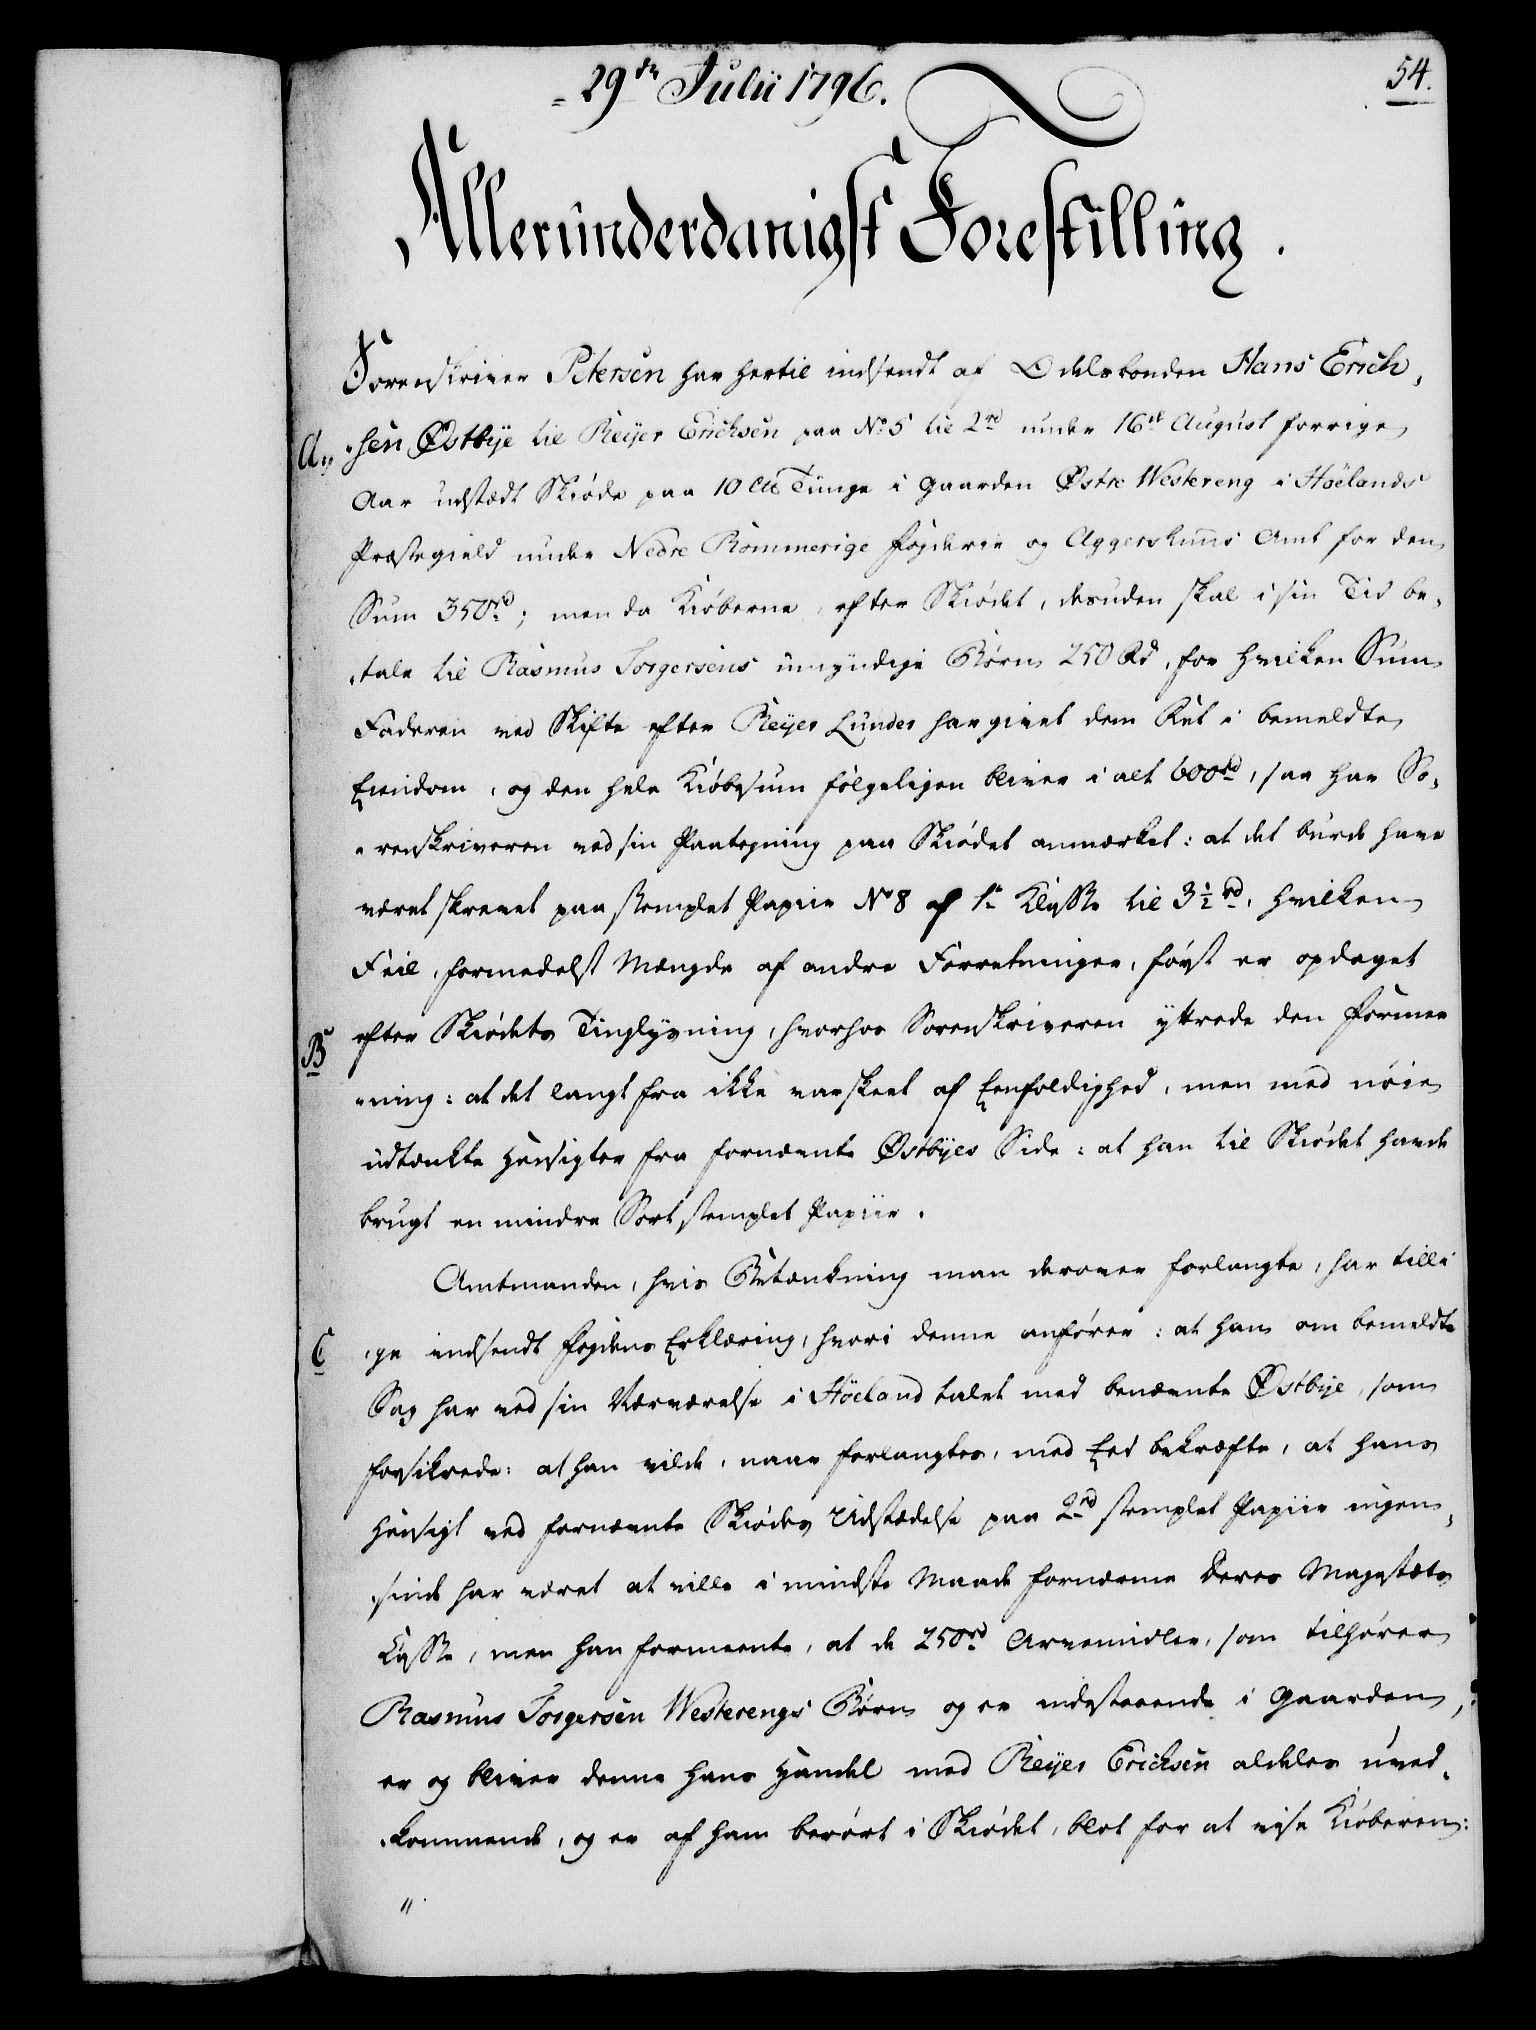 29de Julii 1796.
54.
Allerunderdanigst Forestilling.
Sorenskriver Petersen har hertil indsendt af Odelsbonden Hans Erich,
A,, "sen Østbÿe til Reÿer Erichsen paa No 5 til 2rd under 16de August forrige
Aar udstædt Skiöde paa 10 Lb Tünge i Gaarden Østre Westereng i Höelands
Præstegield under Nedre Rommerige Fogderie og Aggershuus Amt for den
Sum 350rd; men da Kiöberne, efter Skiödet, desuden skal i sin Tid be,
,tale til Rasmus Torgersens umyndige Börn 250 Rd, for hvilken Sum
Faderen ved Skifte efter Reÿer Lundes har givet dem Ret i bemeldte
Eiendom, og den hele Kiöbesum fölgeligen bliver i alt 600rd, saa har So,
"renskriveren ved sin Paategning paa Skiödet anmærket: at det burde have
været skrevet paa stemplet Papiir No 8 af 1te Klasse til 3½rd, hvilken
Feil, formedelst Mængde af andre Forretninger, först er opdaget
efter Skiödets Tinglysning, hvorhos Sorenskriveren yttrede den Formee
B "ning: at det langt fra ikke var skeet af Eenfoldighed, men med nöie
udtænkte Hensigter fra fornævnte Østbÿes Side: at han til Skiödet havde
brugt en mindre Sort stemplet Papiir.
Amtmanden, hvis Betænkning man derover forlangte, har tilli
C ,ge indsendt Fogdens Erklæring, hvori denne anförer: at han om bemeldte
Sag har ved sin Nærværelse i Höeland talet med benævnte Østbÿe, som
forsikrede: at han vilde, naar forlangtes, med Eed bekræfte, at hans
Hensigt ved fornævnte Skiödes Udstædelse paa 2rd stemplet Papiir ingen,
,sinde har været at ville i mindste Maade fornærme Deres Majestæts
Kasse, men han formeente, at de 250rd Arvemidler, som tilhörer
Rasmus Torgersen Westerengs Börn og er indestaaende i Gaarden,
er og bliver denne hans Handel med Reÿer Erichsen aldeles uved,
,kommende, og er af ham berört i Skiödet, blot for at vise Kiöberen:
"